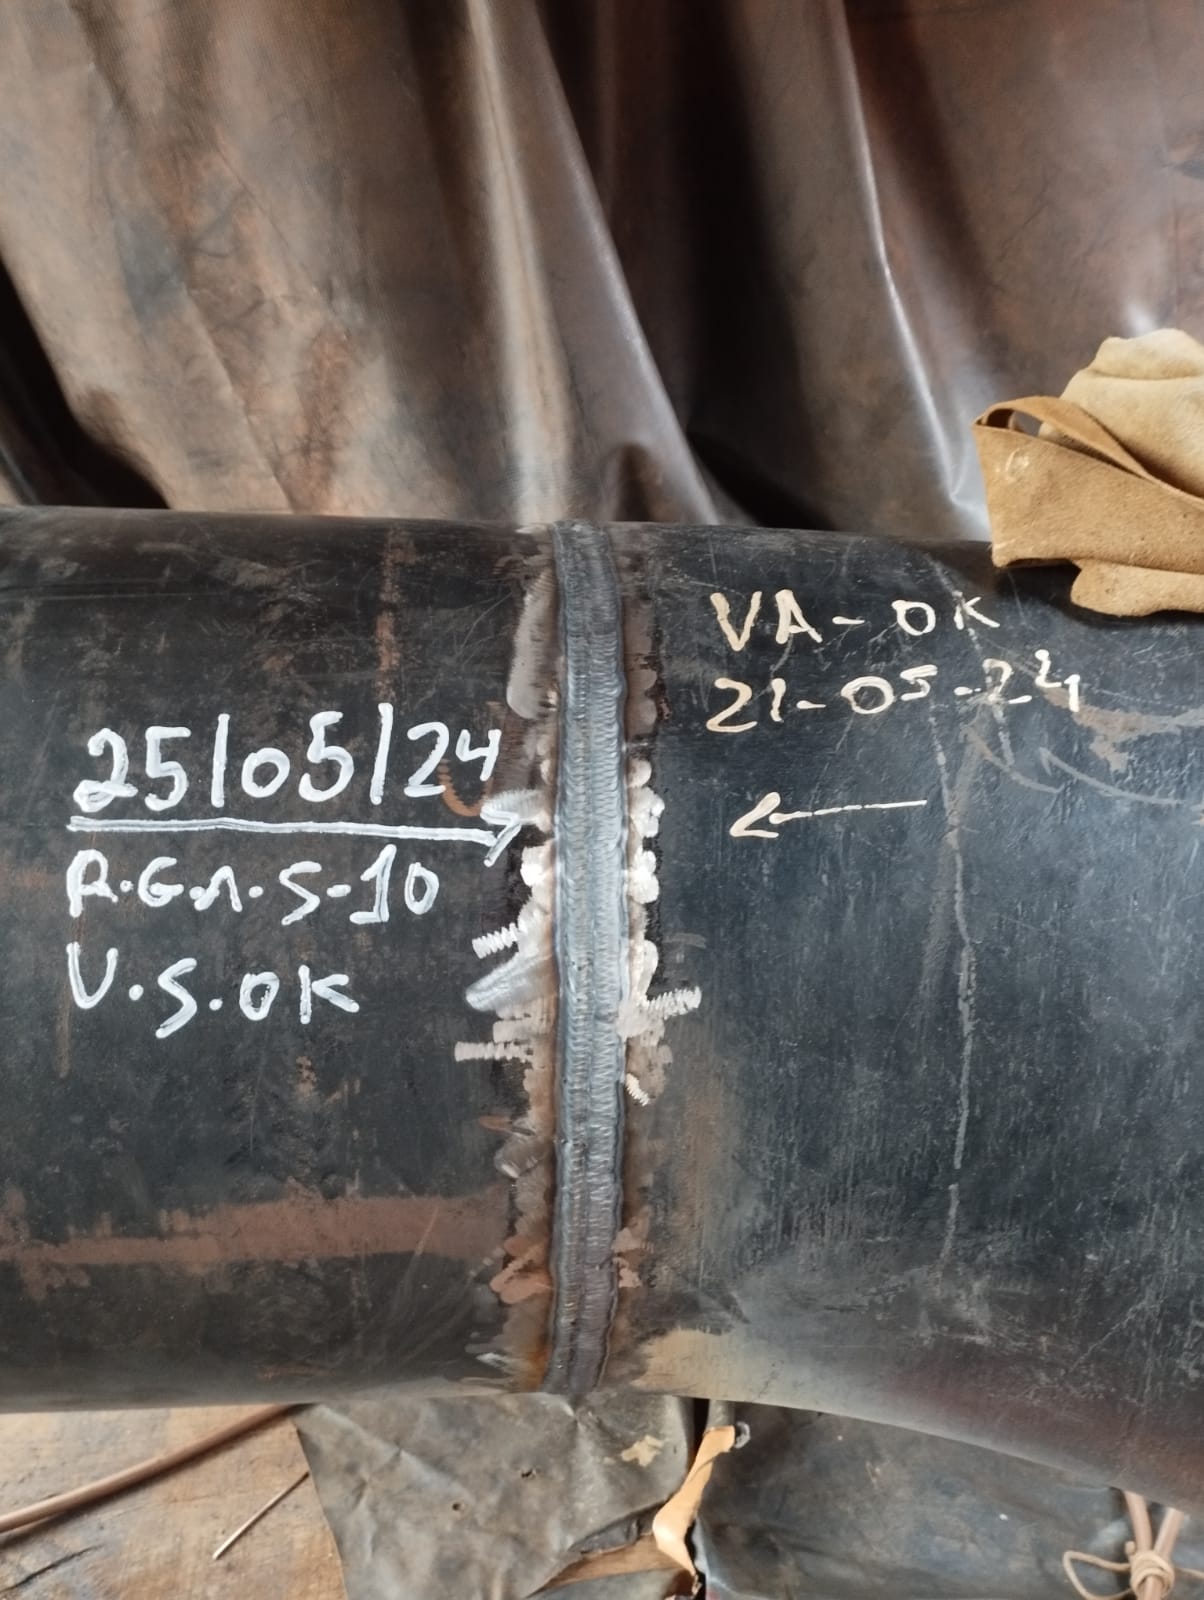 25/05/24
R.G.A.S-10
V.S.OK
VA-OK
21-05-24